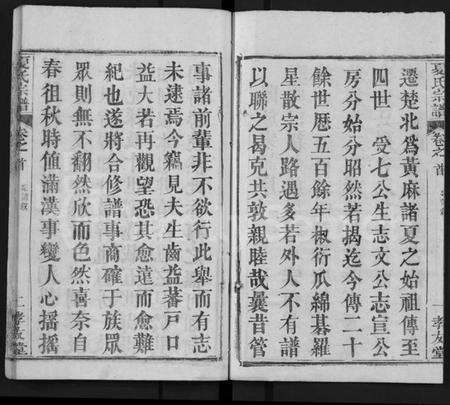 遷楚北為黃麻諸夏之始祖傳至
四世 受七公生志文公志宣公
房分始分昭然若揭迄今傳二十
餘世歷五百餘年椒衍瓜綿棊羅
星散宗人路遇多若外人不有譜
以聯之曷克共敦親睦哉曩昔管
夏氏宗譜
卷之首
一
孝友堂
事諸前輩非不欲行此舉而有志
未逮焉今竊見夫生齒益蕃戶口
益大若再觀望恐其愈遠而愈難
紀也遂將合修譜事商確于族眾
眾則無不翻然欣而色然喜奈自
春徂秋時值滿漢事變人心搖搖
夏氏宗譜
卷之首
二
孝友堂